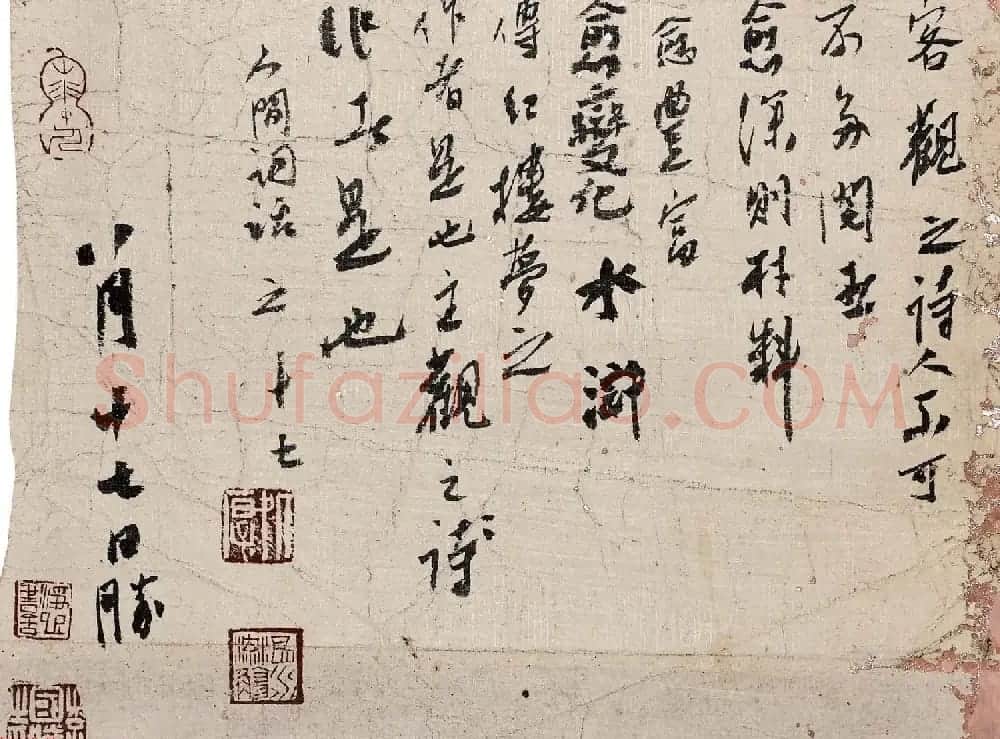 客觀之詩人不可
不多閱世
愈深則材料
愈豐富
愈變化水滸
傳紅樓夢之
作者是也主觀之詩
是也
人間詞話之十七
八月十七日勝
Shufaziliao.COM